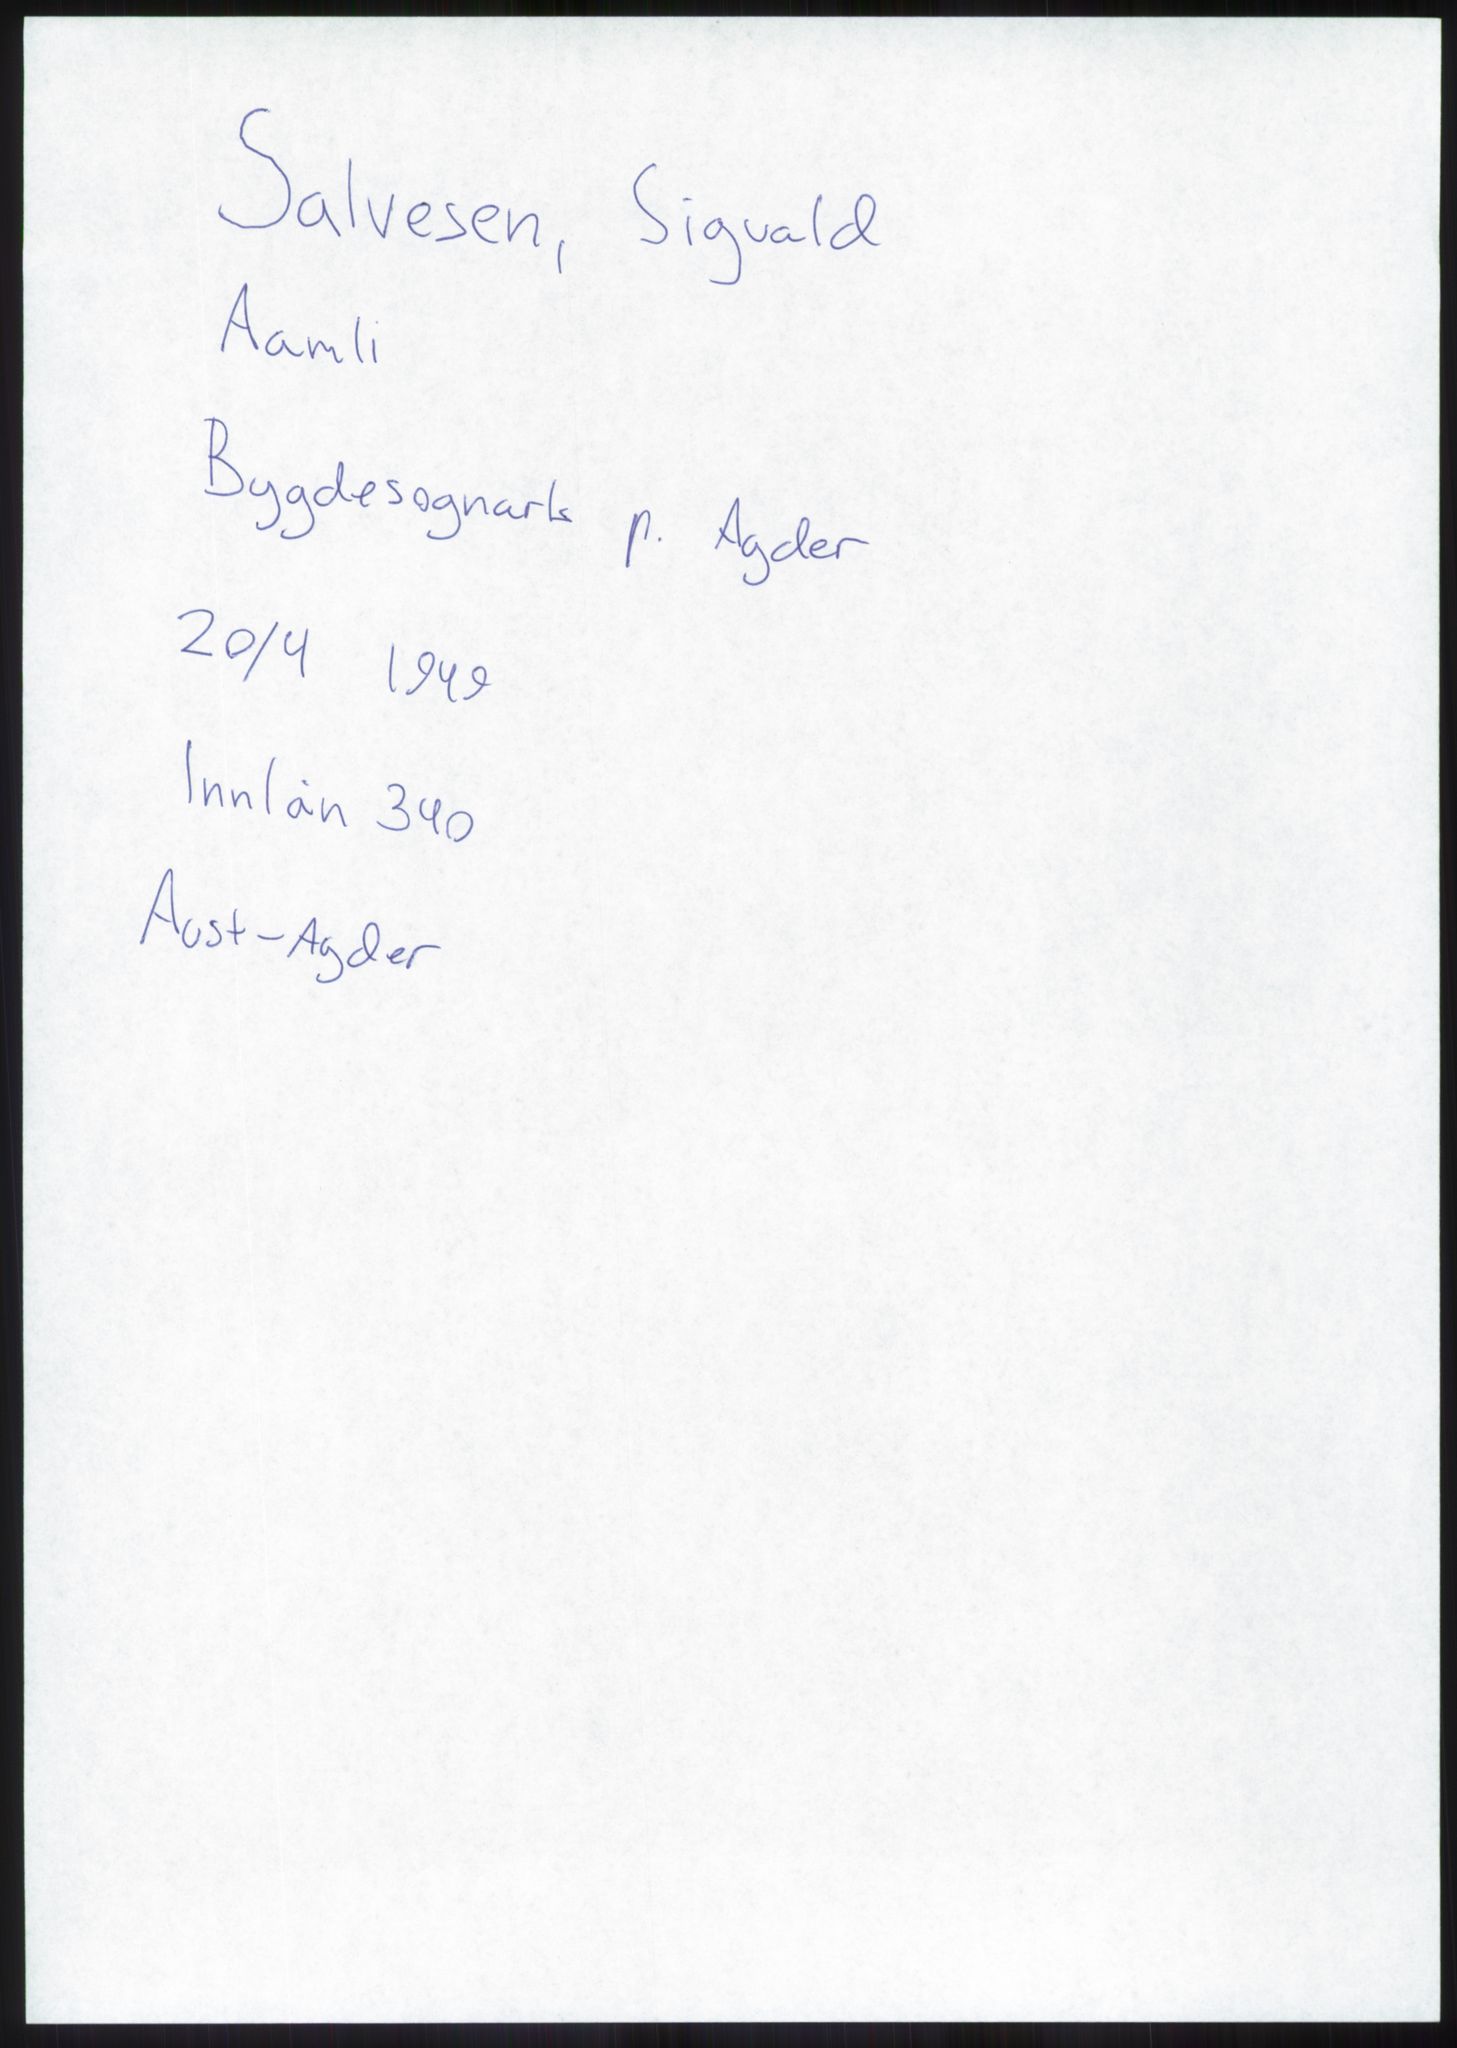 Salvesen, Sigvald
Aamli
Bygdesognark p. Agder
20/4 1949
Innlån 340
Aust-Agder